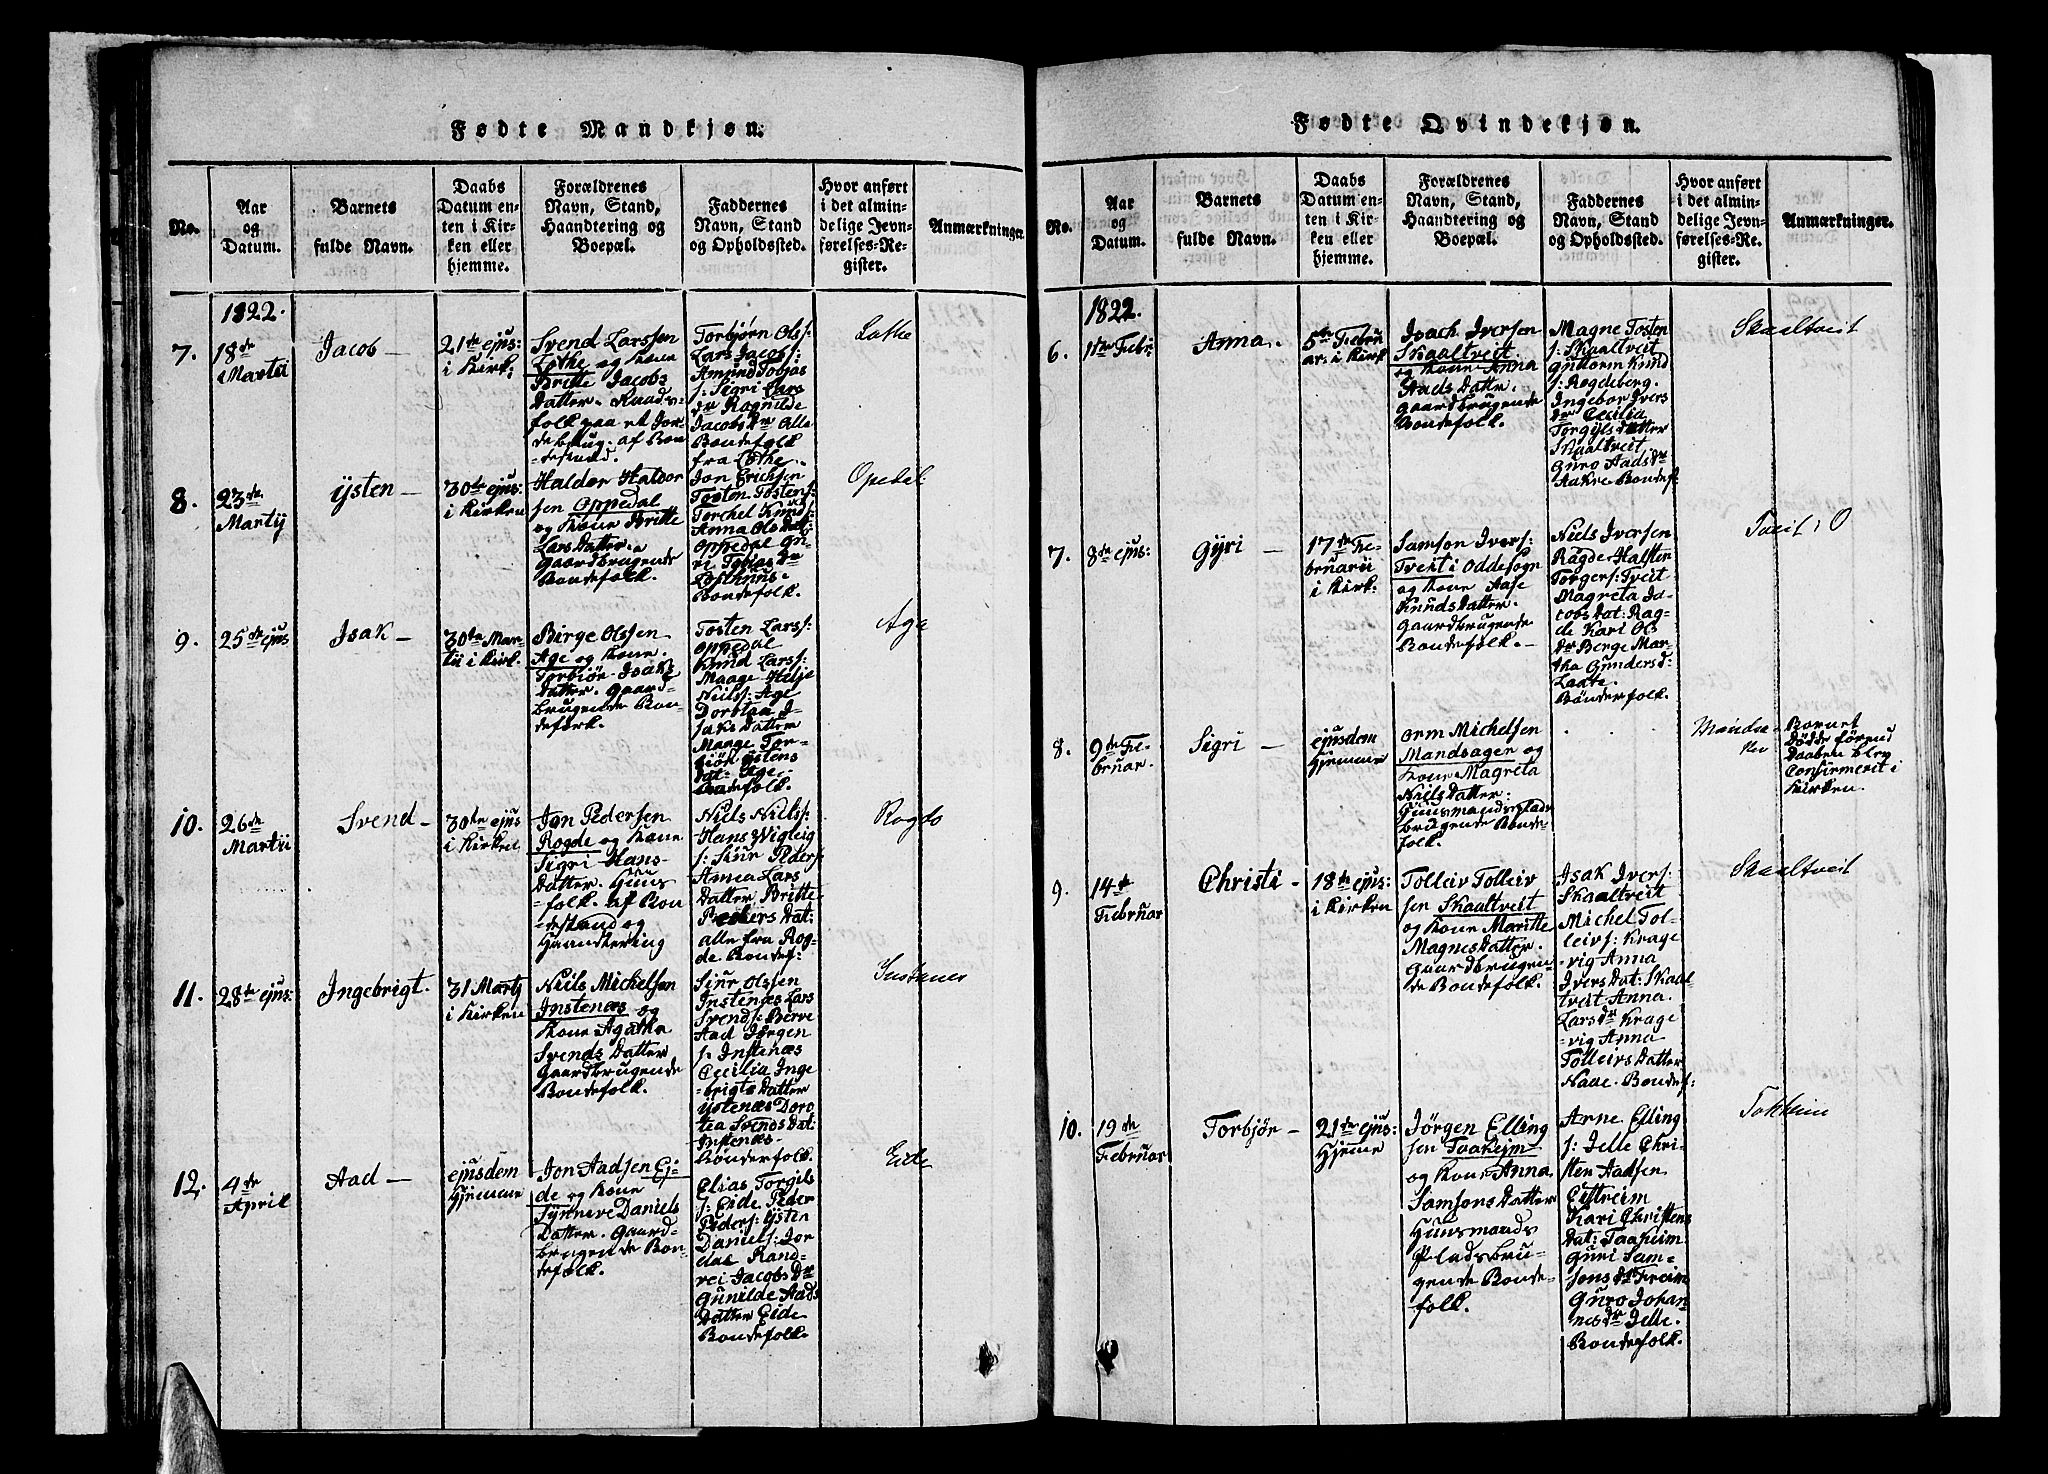 Fødte Mandkjøn.
No.
Aar
og
Datum.
Barnets
fulde Navn.
Daabs
Datum en-
ten i Kir-
ken eller
hjemme.
Forældrenes
Navn, Stand,
Haandtering og
Boepæl.
Faddernes
Navn, Stand
og Opholdssted.
Hvor anført
i det almin-
delige Jevn-
førelses-Re-
gister.
Anmærkninger.
1822.
7.
18de
Martii
Jacob —
21de ejus:
i Kirk:
Svend Larssen
Lothe og Kone
Britte Jacobs
Datter.
folk paa et Jor-
debrug. af Bon
-destand.
Torbjørn Ols:
Lars Jacobs:
Amund Tobias
s: Sigri Lars
dr Ragnilde
Jacobs Dr Alle
Bondefolk
fra Lothe.
Lothe
8.
23de
Martij
ÿsten —
30te ejus:
i Kirken
Haldor Haldor
sen Oppedal
og Kone Britte
Lars Datter.
Gaardbrugende
Bondefolk.
Jon Erichsen
Tosten Tostens:
Torchel Knuds:
Anna Ols Dat:
Oppedal Gu-
ri Tobias Dr
Lofthuus.
Bondefolk.
Opedal
9.
25de ejus
Isak —
30te Mar-
tii i Kirk.
Birge Olssen
Age og Kone
Torbiør Isaks
Datter. Gaard-
brugende Bon-
defolk.
Tosten Lars:
Oppedal
Knud Lars:
Maage Helje
Niels: Age
Dorotea I-
saks Datter
Maage Tor-
biør ÿstens
Dat: Age.
Bondefolk.
Age
10.
26de
Martii
Svend —
30te ejus
i Kirken
Jon Pedersen
Rogde og Kone
Sigri Hans-
Datter. Huus
-folk. af Bon
-destand og
Haandtering
Niels Niels:
Hans Wigleig
s: Siur Peders:
Anna Lars
Datter Britte
Peders Dat:
alle fra Rog-
de. Bondef:
Rogde
11.
28de ejus:
Ingebrigt.
31 Martij
i Kirken
Niels Michelsen
Instenæs og
Kone Agatha
Svends Datter
Gaardbrugende
Bondefolk.
Siur Olssen
Instenæs Lars
Svends: Berve
Aad Jørgen
s: Instenæs
Cecilia Inge
brigts Datter
ÿstenæs Doro
tea Svends Dat:
Instenæs.
Bønderfolk.
Instenes
12.
4de
April
Aad —
ejusdem
Hjemme
Jon Aadsen Ej-
de og Kone
Synneve Daniels
Datter. Gaard-
brugende Bon-
defolk.
Elias Torgils
s: Eide Peder
Peders: ÿsten
Daniels: Jor
dal Rand-
vei Jacobs Dr
Gunilde Aads
Datter Eide
Bondefolk.
Eide
Fødte Qvindekjøn.
No.
Aar
og
Datum.
Barnets
fulde Navn.
Daabs
Datum en-
ten i Kir-
ken eller
hjemme.
Forældrenes
Navn, Stand,
Haandtering og
Boepæl.
Faddernes
Navn, Stand
og Opholdssted.
Hvor anført
i det almin-
delige Jevn-
førelses-Re-
gister.
Anmærkninger.
1822.
6.
1ste Febr:
Anna.
5te Febru
ar. i Kirk
Isach Iversen
Skaaltveit
og Kone Anna
Aads Datter.
Gaardbrugende
Bondefolk.
Magne Tosten
s: Skaaltveit
Guttorm Knud
s: Rogdeberg.
Ingebor Ivers
dr Cecilia
Torgils Datter
Skaaltveit
Guro Aads dr
Aakre Bondef:
Skaaltveit
7.
8de ejus:
Gÿri —
17de Fe-
bruarii
i Kirk:
Samson Ivers:
Tveit i Oddesogn
og Kone Aase
Knuds Datter.
Gaardbrugende
Bondefolk. —
Niels Iversen
Ragde Halsten
Torgers: Tveit
Magreta Ja-
cobs Dat: Rag-
de Kari Ols
Dr Berge Mar-
tha Gunders d:
Laate.
Bønderfolk.
Tveit i O
8.
9de Fe-
bruar.
Sigri —
ejusdem
Hjemme
Orm Michelsen
Mandsager og
Kone Magreta
Niels Datter:
Huusmandsplads
brugende Bonde-
folk.
Barnet
Dødde førend
Daaben blev
Confirmerit i
Kirken.
9.
14de
Februar
Christi —
18de ejus:
i Kirken
Tolleiv Tolleiv
sen Skaaltveit
og Kone Maritte
Magnes Datter.
Gaardbrugen-
de Bondefolk.
Isak Ivers:
Skaaltveit
Michel Tol-
leivs: Krage
-vig Anna
Ivers Dat: Skaal
tveit Anna
Lars dr Krage
-vig Anna
Tolleivs Datter
Naae. Bondef:
Skaaltveit
10.
19de
Februar
Torbjør —
21de ejus:
Hjeme
Jörgen Elling
sen Tvakejm
og Kone Anna
Samsons Datter
Huusmands
Pladsbru-
gende Bonde-
folk.
Arne Elling
s: Jelle Chri-
sten Aadsen
Eittreim
Kari Christens
Dat: Taakeim
Guri Sam-
sons dr Freim
Guro Johan-
nes dr Jelle.
Bondefolk.
Tokheim